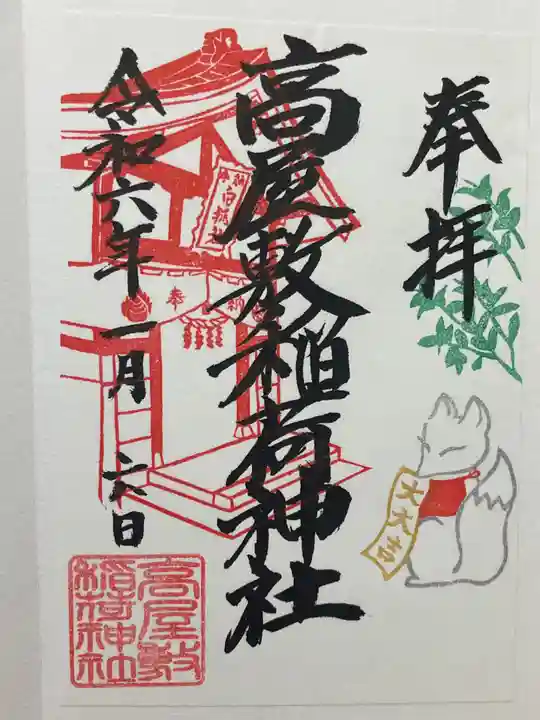 奉拝
高屋敷稲荷神社
令和六年一月六日
白狐社
奉納
大大吉
高屋敷
稲荷神社